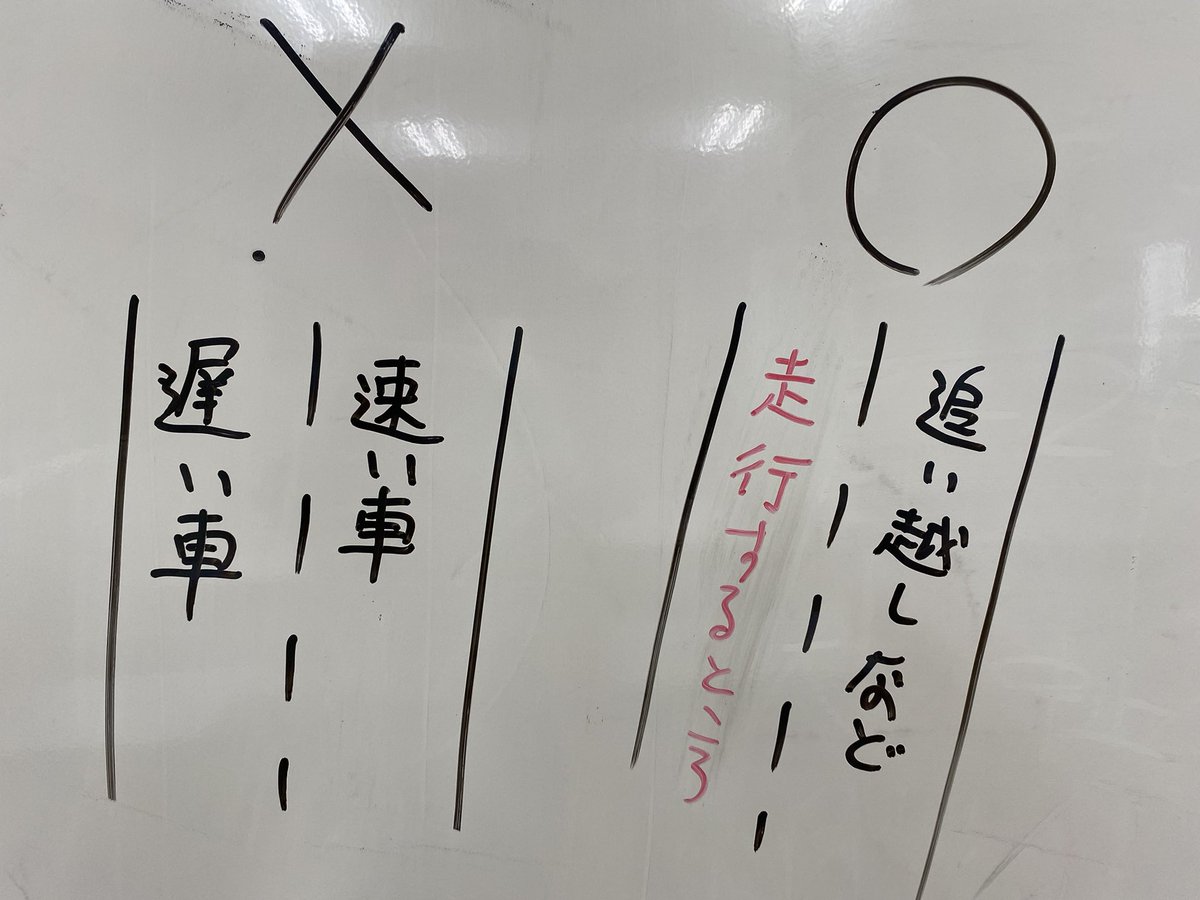 遅い車
速い車
走行するところ
追い越しなど